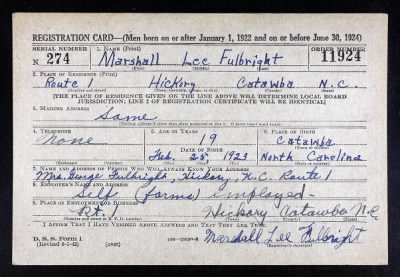 REGISTRATION CARD—(Men born on or after January 1, 1922 and on or before June 30, 1924)
SERIAL NUMBER 1. NAME (Print) ORDER NUMBER
N 274 Marshall Lee Fulbright 11924
(First) (Middle) (Last)
2. PLACE OF RESIDENCE (Print)
Route 1 Hickory Catawba N.C.
[THE PLACE OF RESIDENCE GIVEN ON THE LINE ABOVE WILL DETERMINE LOCAL BOARD
JURISDICTION; LINE 2 OF REGISTRATION CERTIFICATE WILL BE IDENTICAL]
3. MAILING ADDRESS
Same
4. TELEPHONE 5. AGE IN YEARS 6. PLACE OF BIRTH
None 19 Catawba
DATE OF BIRTH
Feb. 28, 1923 North Carolina
7. NAME AND ADDRESS OF PERSON WHO WILL ALWAYS KNOW YOUR ADDRESS
Mrs. George Fulbright, Hickory, N.C. Route 1
8. EMPLOYER'S NAME AND ADDRESS
Self (farms) employed
9. PLACE OF EMPLOYMENT OR BUSINESS
Rt. 1 Hickory Catawba N.C
I AFFIRM THAT I HAVE VERIFIED ABOVE ANSWERS AND THAT THEY ARE TRUE.
D. S. S. Form 1
(over) Marshall Lee Fulbright